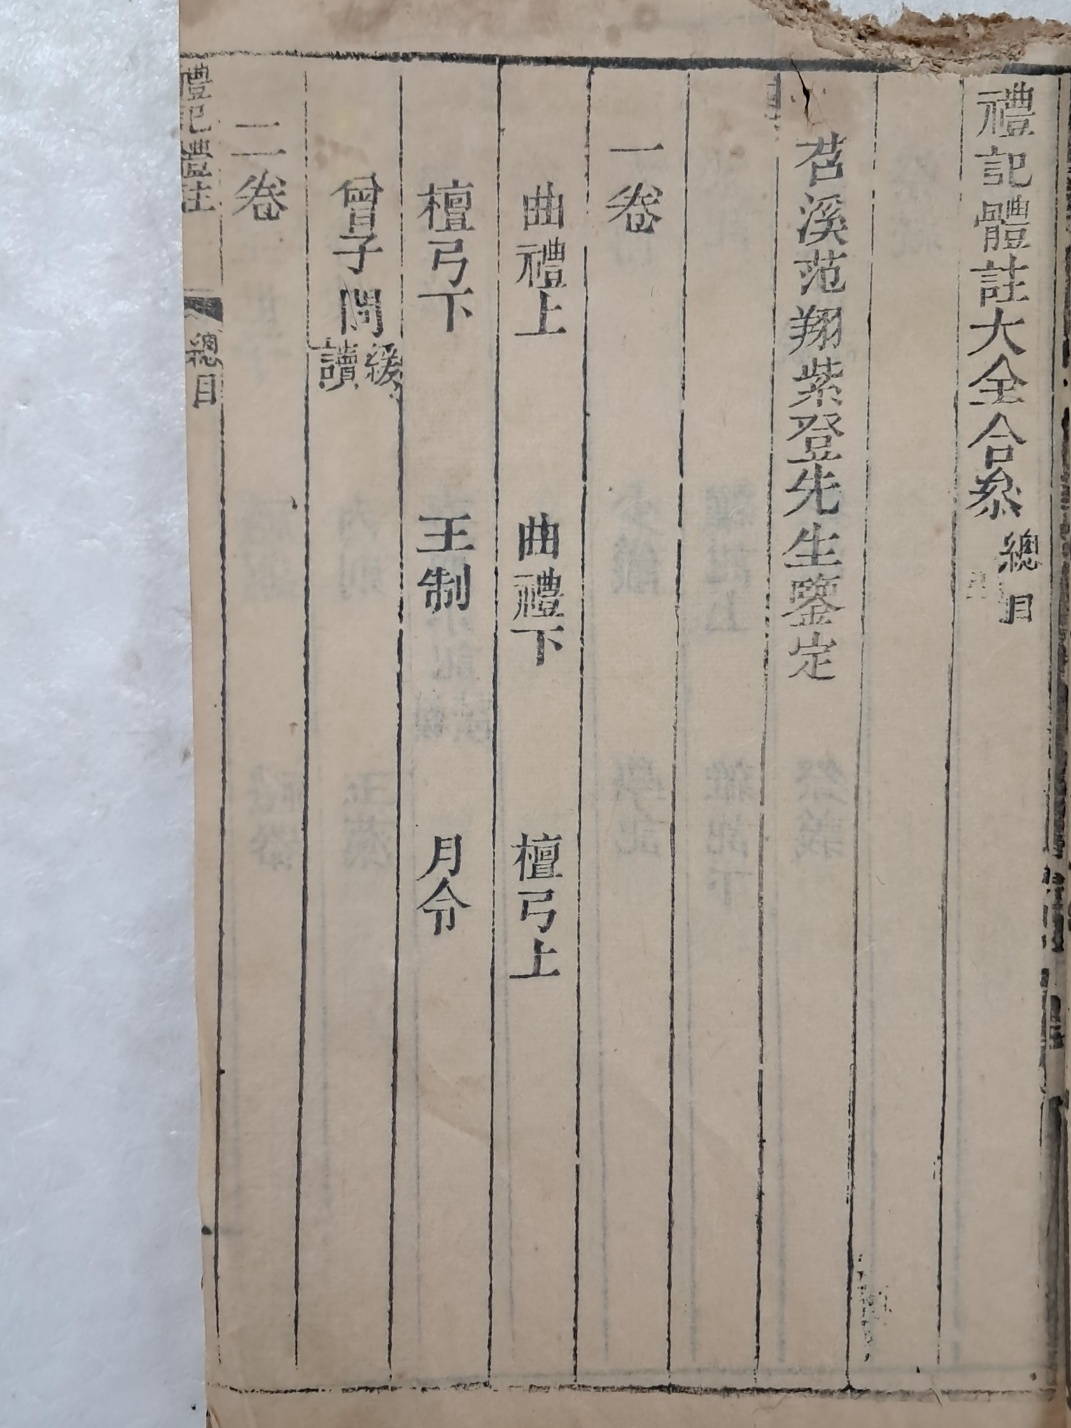 禮記體註大全合叅 總目
苕溪范翔紫登先生鑒定
一卷
曲禮上 曲禮下 檀弓上
檀弓下 王制 月令
曾子問 緩讀
二卷
禮記體註 總目